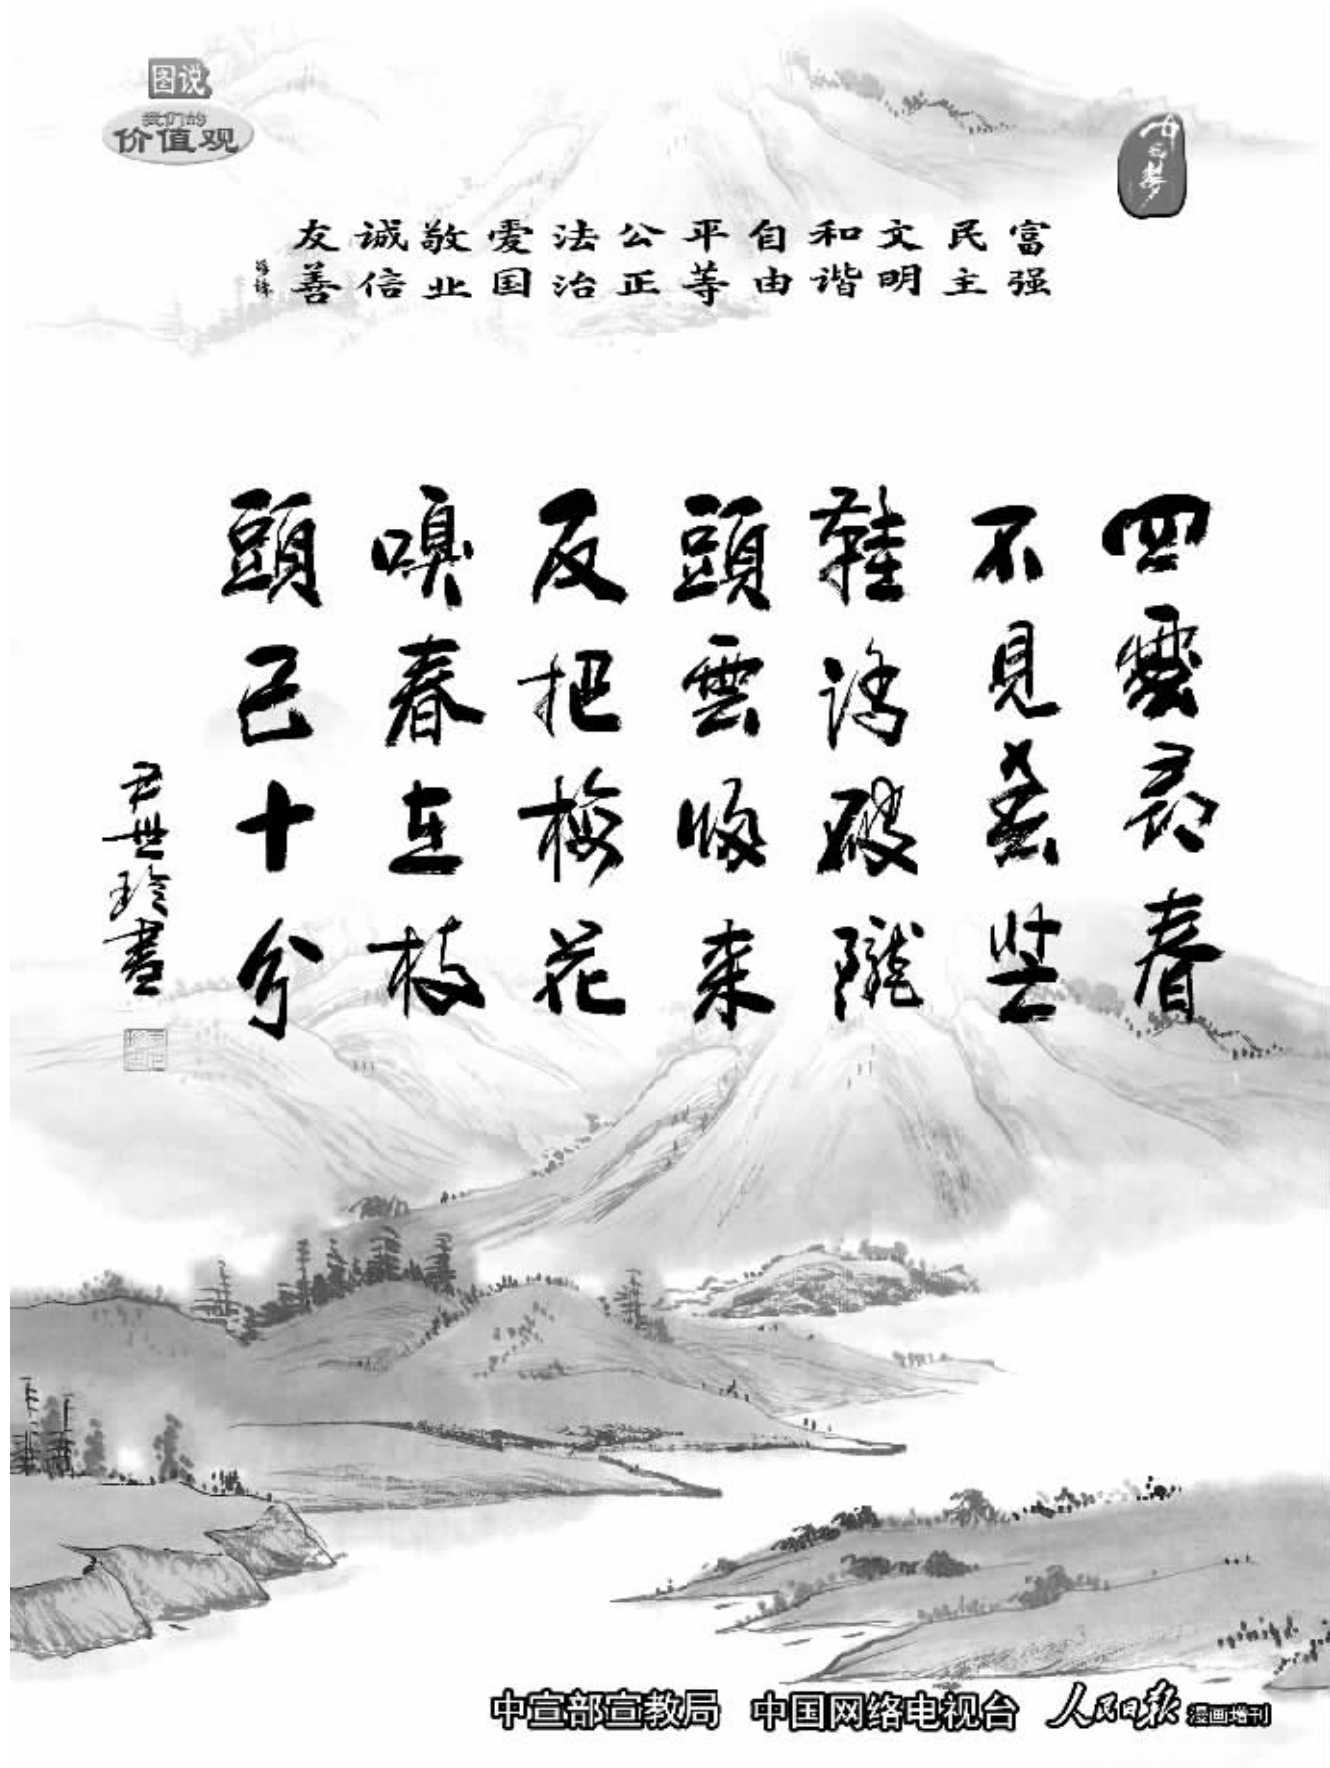 图说
我们的
价值观
中国梦
富强
民主
文明
和谐
自由
平等
公正
法治
爱国
敬业
诚信
友善
四處尋春
不見春芒
鞋踏破隴
頭雲歸来
反把梅花
嗅春在枝
頭已十分
尹世玲書
中宣部宣教局 中国网络电视台 人民日报 漫画增刊